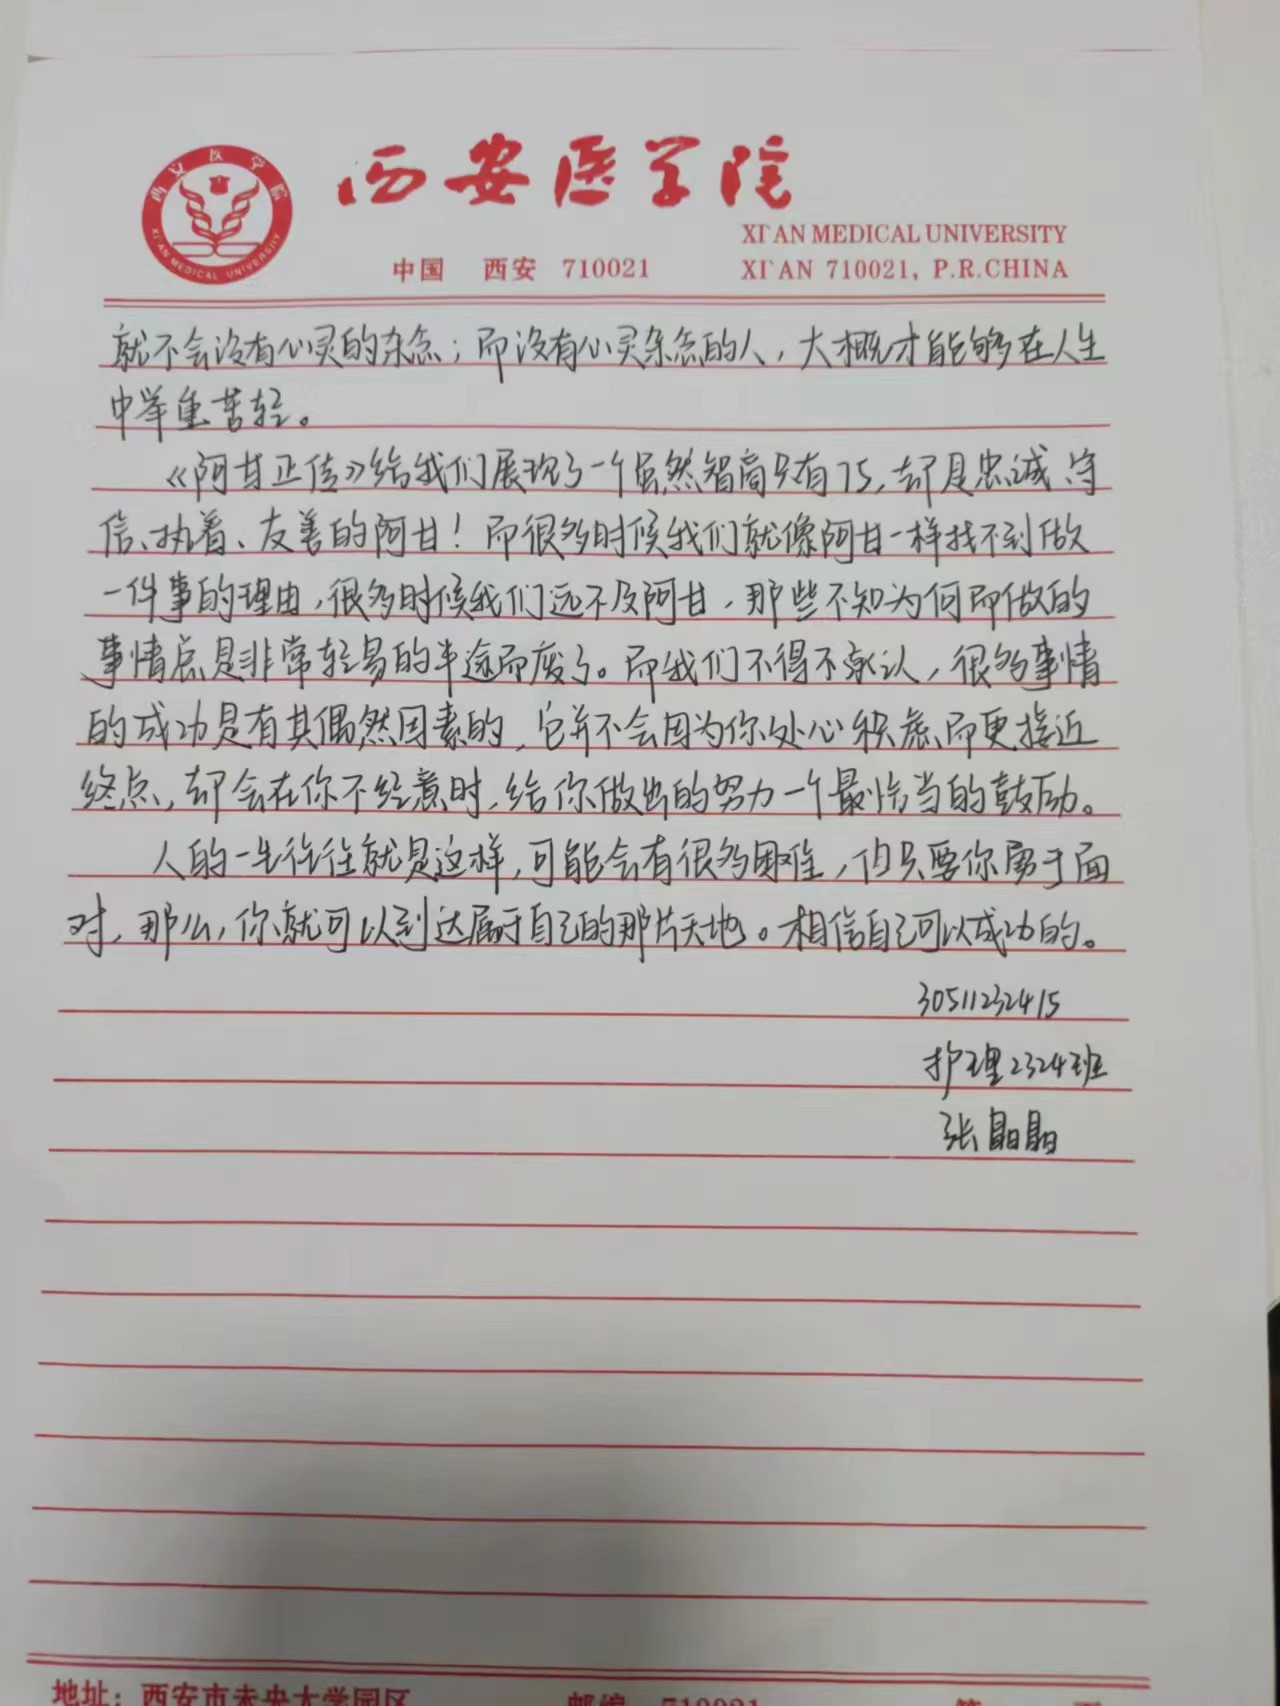 西安医学院
XI'AN MEDICAL UNIVERSITY
中国 西安 710021
XI'AN 710021, P.R.CHINA
西安医学院
XI'AN MEDICAL UNIVERSITY
就不会没有心灵的杂念；而没有心灵杂念的人，大概才能够在人生
中举重若轻。
《阿甘正传》给我们展现了一个虽然智商只有75，却是忠诚、守
信、执着、友善的阿甘！而很多时候我们就像阿甘一样找不到做
一件事的理由，很多时候我们远不及阿甘，那些不知为何而做的
事情总是非常轻易的半途而废了。而我们不得不承认，很多事情
的成功是有其偶然因素的，它并不会因为你处心积虑而更接近
终点，却会在你不经意时，给你做出的努力一个最恰当的鼓励。
人的一生往往就是这样，可能会有很多困难，但只要你勇于面
对，那么，你就可以到达属于自己的那片天地。相信自己可以成功的。
30511232415
护理2324班
张晶晶
地址：西安市未央大学园区 邮编 710021 第 页